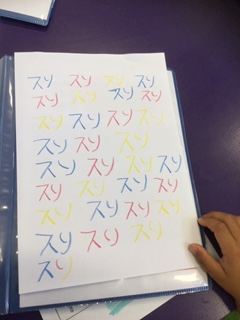 スリ スリ スリ スリ
スリ スリ スリ スリ
スリ スリ スリ スリ
スリ スリ スリ
スリ スリ スリ スリ
スリ スリ スリ スリ
スリ スリ スリ スリ
スリ スリ スリ
スリ